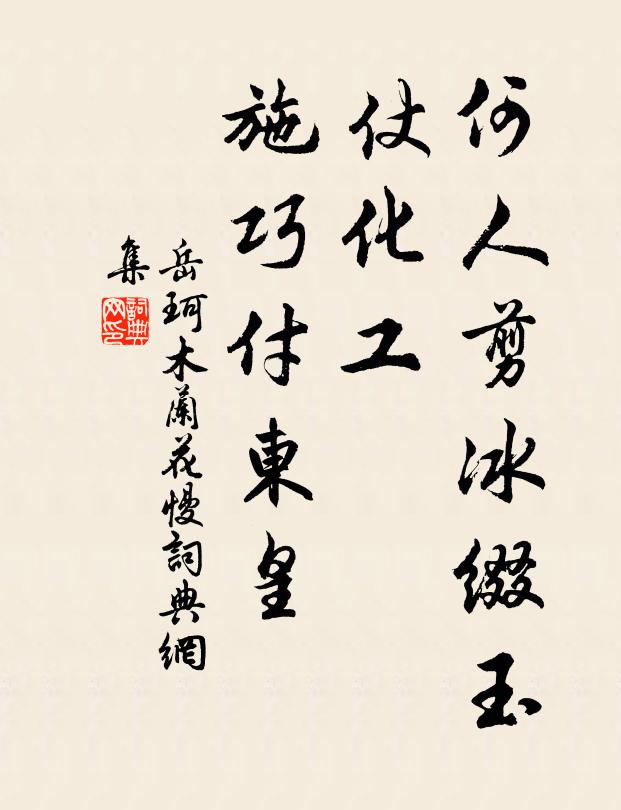 何人剪冰綴玉
仗化工
施巧付東皇
岳珂木蘭花慢詞典網
集
詞典网印